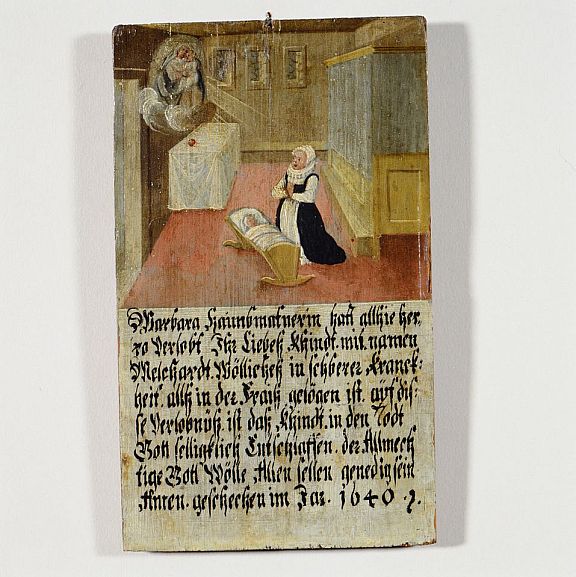 Barbara Haimbmahnerin hatt allhie her,
ro Verlobt Ihr Liebeß Khindt mit namen
Melchardt, Wölliches in schberer Kranck-
heit allß in der Fraiß gelögen ist, auf dis-
se Verlobnuß ist daß Khindt in den Todt
Gott selligklich Entschlaffen, der Allmech
tige Gott Wölle Allen sellen genedig sein
Amen. geschechen im Jar. 1640